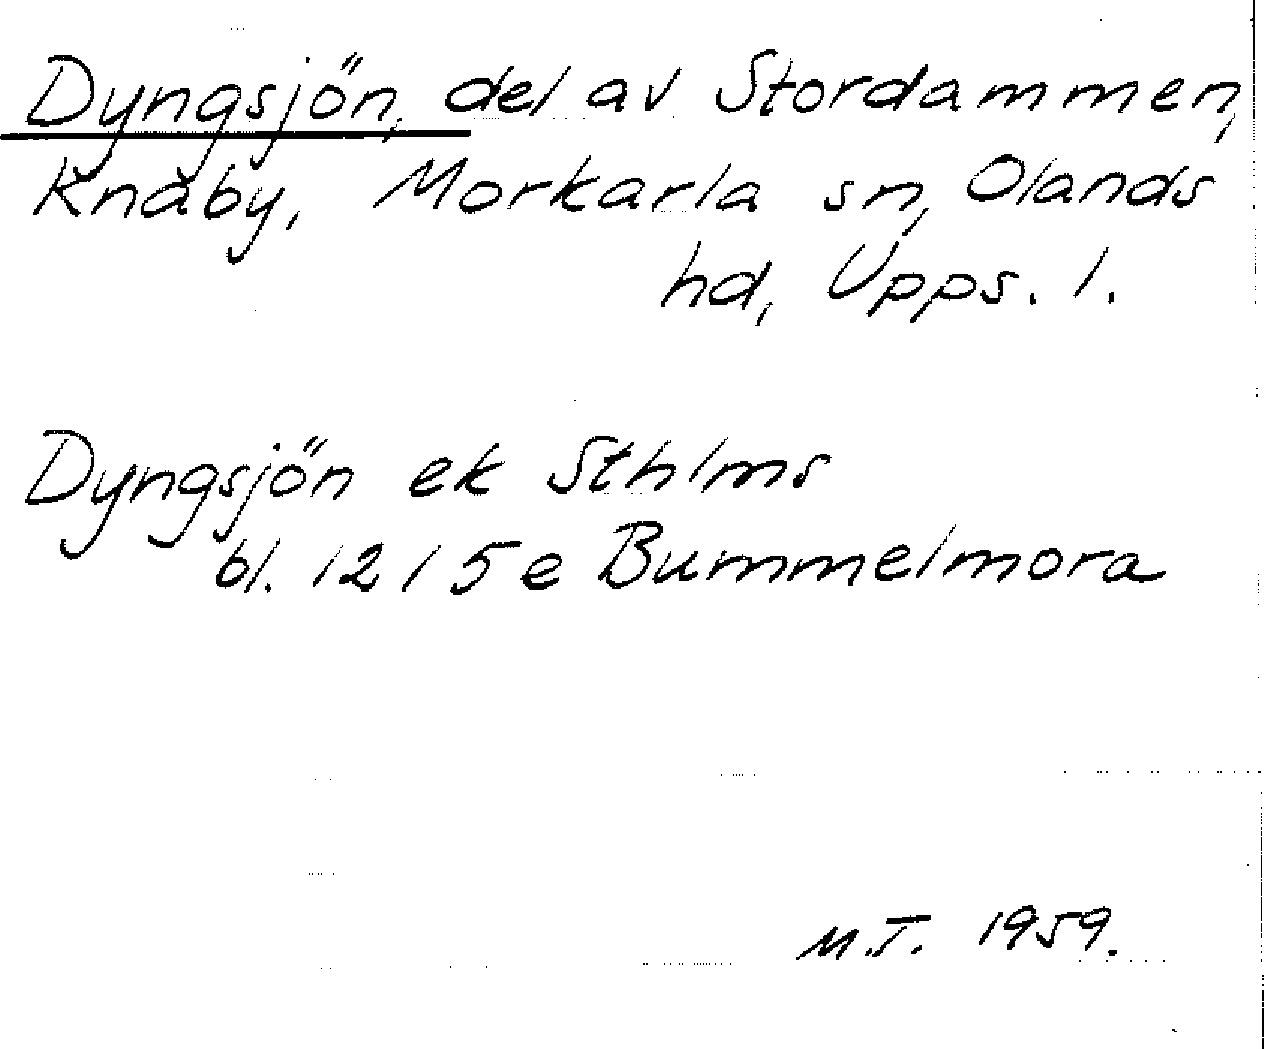 Dyngsjön, del av Stordammen,
Knaby, Morkarla sn, Olands
hd, Upps. l.
Dyngsjön ek Sthlms
bl. 12 I 5e Bummelmora
M.T. 1959.